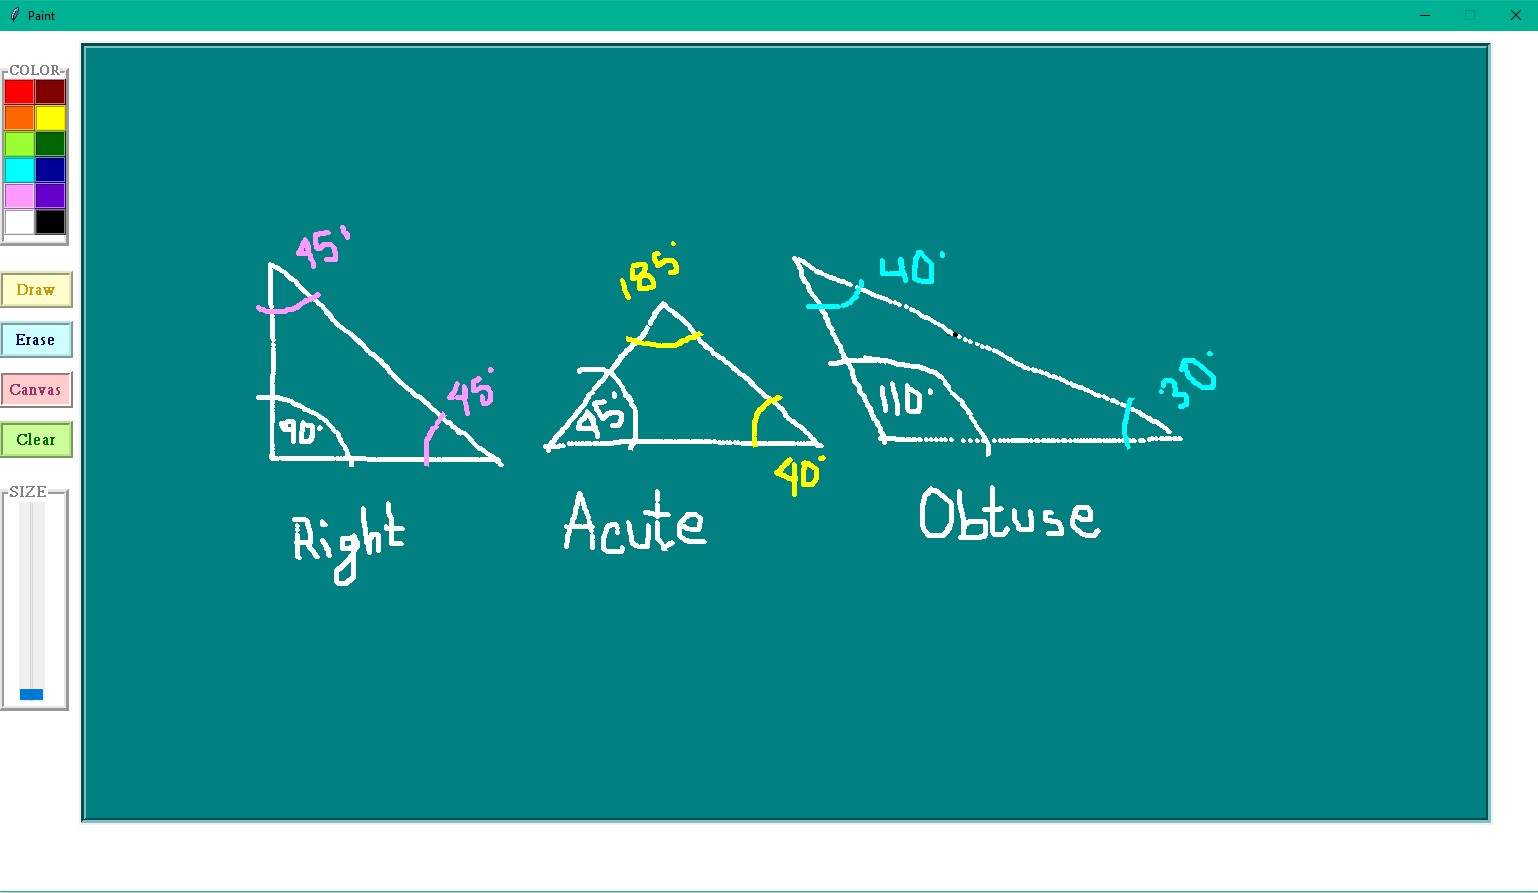 Paint
COLOR
Draw
Erase
Canvas
Clear
SIZE
45°
45°
90°
Right
185°
45°
40°
Acute
40°
110°
30°
Obtuse